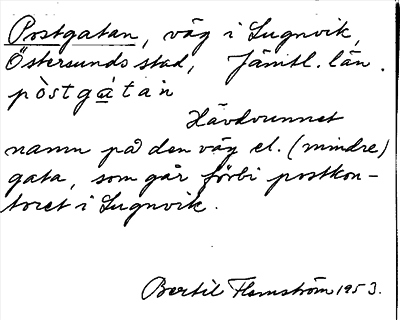 Postgatan, väg i Lugnvik,
Östersunds stad, Jämtl. län.
pòstgátàn
Hävdvunnet
namn på den väg el. (mindre)
gata, som går förbi postkon-
toret i Lugnvik.
Bertil Flemström 1953.